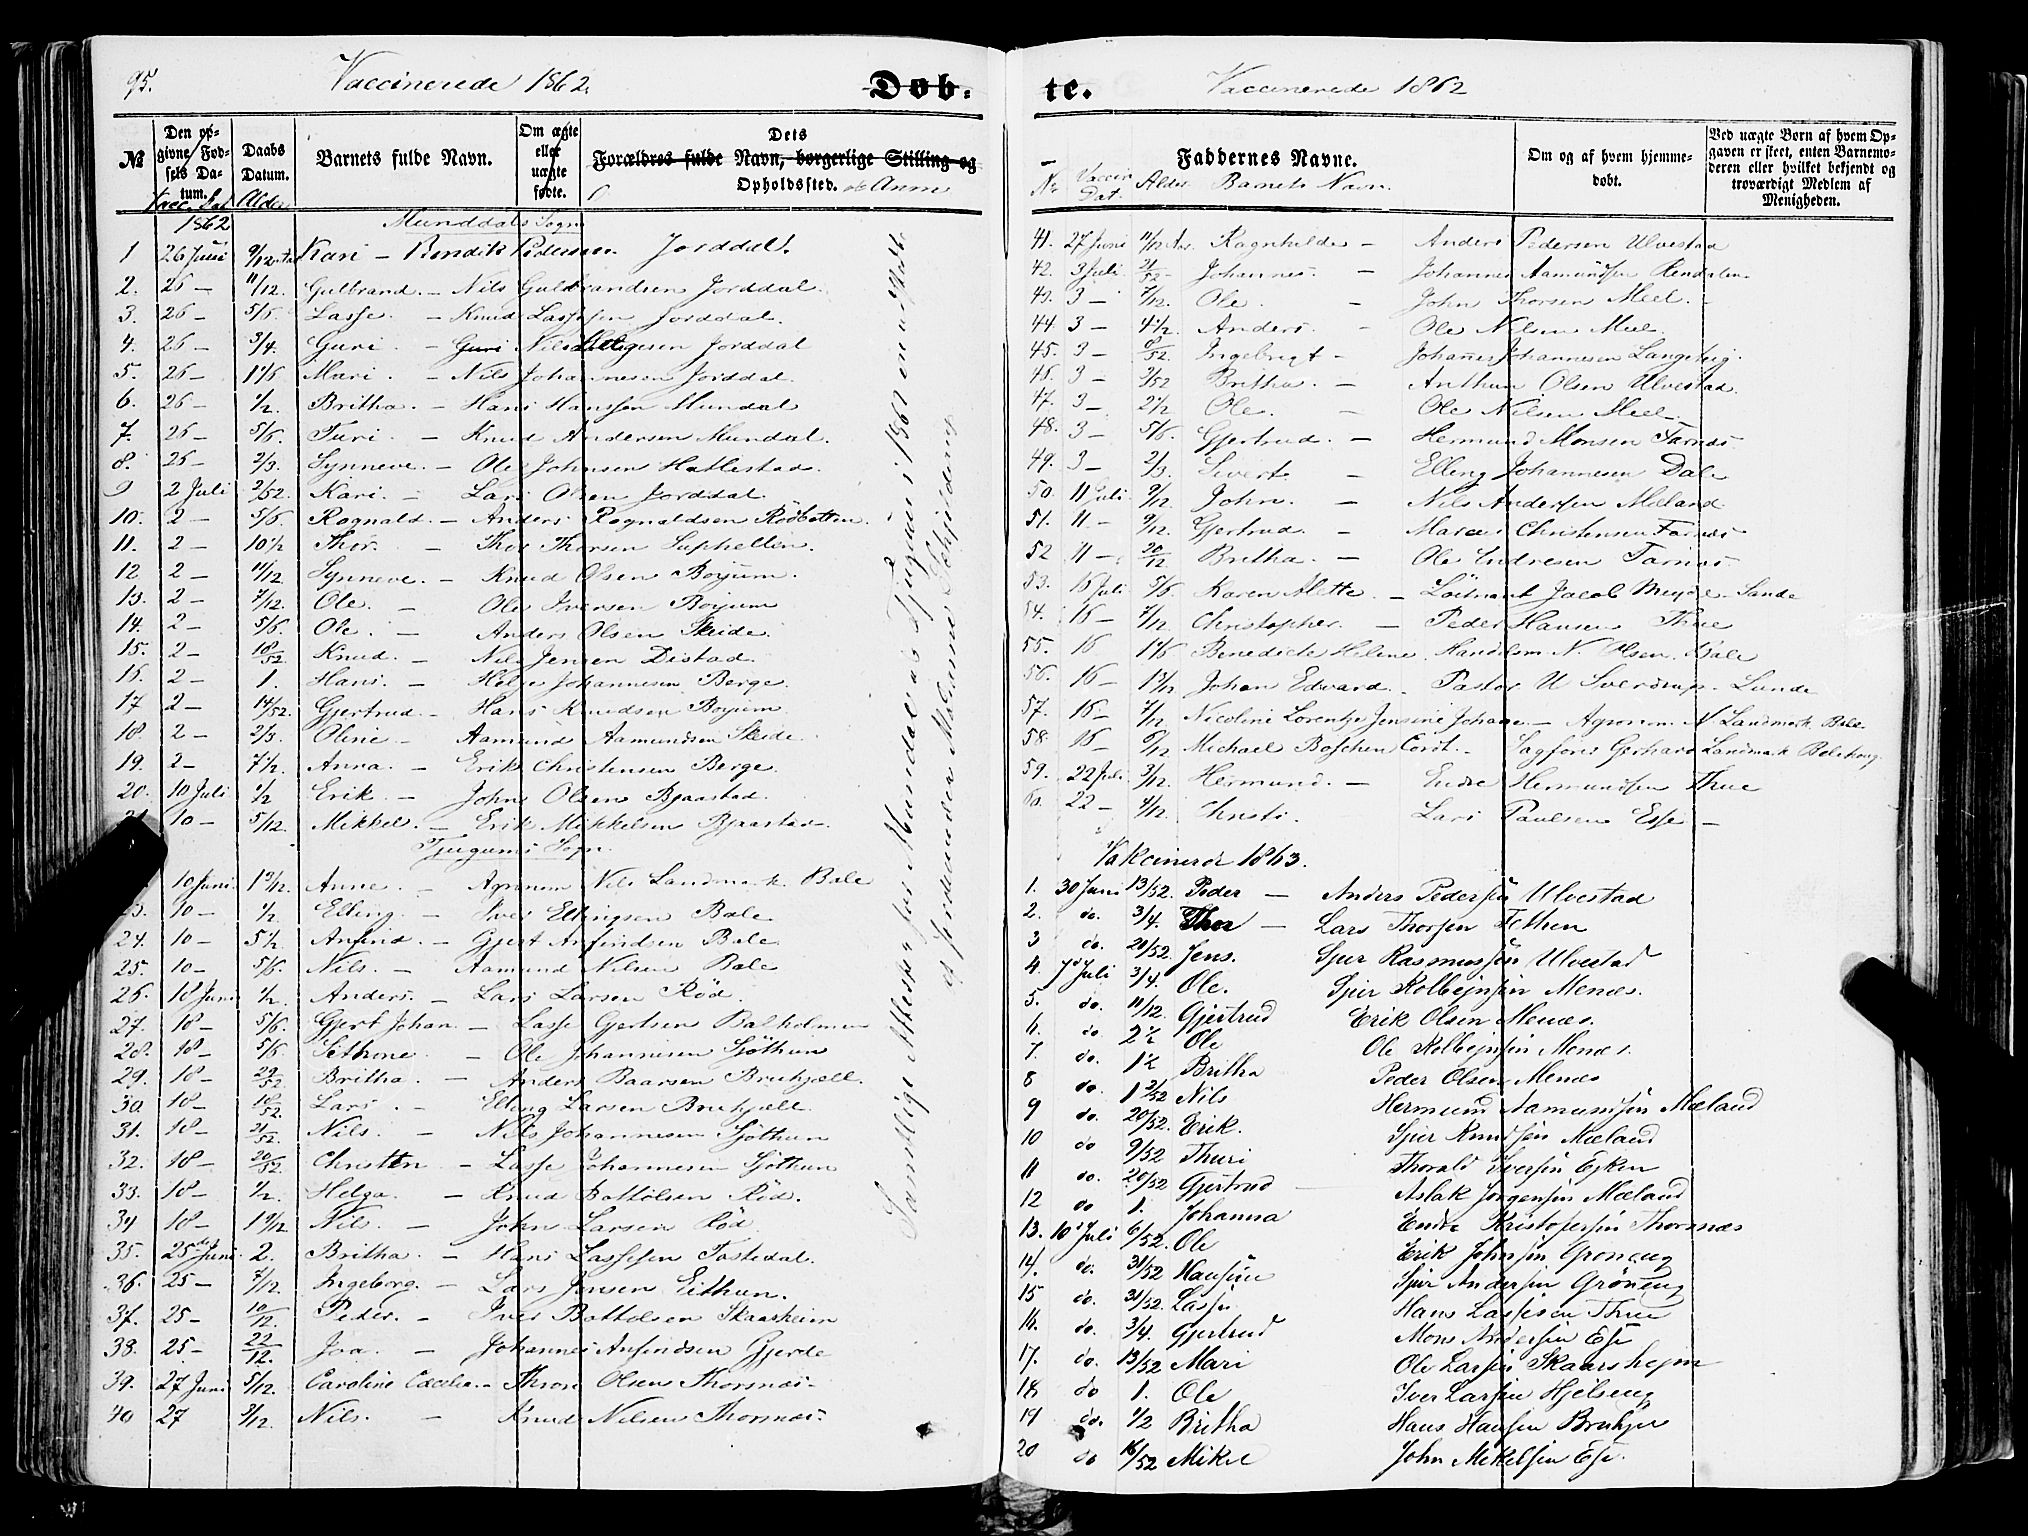 95. Vaccinerede 1862. Døb-
№ Den opgivne Fødsels Datum. Daabs Datum. Barnets fulde Navn. Om ægte eller uægte fødte. Dets Forældres fulde Navn, borgerlige Stilling og Opholdssted. og Anm
Vacc. Dat Alder
1862 Munddals Sogn
1 26 Juni 9/12 Aar Kari - Bendik Pedersen Jorddal.
2. 26 - 11/12. Gulbrand. - Nils Gulbrandsen Jorddal.
3. 26 - 5/6 Lasse. - Knud Lassesen Jorddal.
4. 26 - 3/4. Guri - Guri Nils Helgesen Jorddal
5. 26 - 1 1/6 Mari. - Nils Johannesen Jorddal.
6. 26 - 1/2 Britha. - Hans Hanssen Mundal
7. 26 - 5/6 Turi. - Knud Andersen Mundal.
8. 26 - 2/3. Synneve. - Ole Johnsen Hatlestad.
9 2 Juli 3/52. Kari. - Lars Olsen Jorddal
10. 2 - 5/6 Rognald. - Anders Rognaldsen Rödbotten.
11. 2 - 10 1/2 Thor. - Thor Thorsen Suphellen.
12 2 - 11/12 Synneve. - Knud Olsen Boyum.
13. 2 - 7/12. Ole. - Ole Iversen Boyum
14. 2 - 5/6. Ole. - Anders Olsen Skeide.
15. 2 - 18/52 Knud. - Nils Jensen Distad.
16. 2 - 1. Hans. - Helge Johannesen Berge.
17 2 - 14/52. Gjertrud. - Hans Knudsen Boyum.
18. 2 - 2/3. Oline - Aamund Aamundsen Skeide.
19. 2 - 7 1/2. Anna. - Erik Christensen Berge.
20. 10 Juli 1/2 Erik. - Johns Olsen Bjaastad.
10 - 5/12. Mikkel. - Erik Mikkelsen Bjaastad.
Tjugums Sogn.
10 Juni. 1 9/12. Anne. - Agronom Nils Landmark. Bale
23. 10 - 1/2 Elling. - Iver Ellingsen Bale.
24. 10 - 5 1/2. Anfind. - Gjert Anfindsen Bale.
25. 10 - 5/6. Nils. - Aamund Nilsen Bale
26. 18 Juni 1/2 Anders. - Lars Larsen Röd.
27. 18 - 5/6. Gjert Johan - Lasse Gjertsen Balholmen
28. 18 - 5/6. Sethrine. - Ole Johannesen Sjöthun
29. 18 - 29/52 Britha. - Anders Baarsen Bruhjell.
30. 18 - 18/52. Lars. - Elling Larsen Bruhjell.
31. 18 - 21/52. Nils. - Nils Johannesen Sjöthun
32. 18 - 20/52 Christen - Lasse Johannesen Sjöthun
33. 18 - 1/2. Helga. - Knud Bottolsen Röd.
34 18 - 1 9/12. Nils. - John Larsen Röd
35. 25de Juni. 2. Britha. - Hans Lassesen Tostedal.
36. 25 - 7/12. Ingeborg. - Lars Jensen Eithun.
37. 25 - 10/12. Peder. - Iver Bottolsen Skaasheim
38. 25 - 22/12. Joa. - Johannes Anfindsen Gjerde
39. 27 Juni 5/12. Caroline Cæcilia. - Thron Olsen Thorsnæs -
40 27 3/12. Nils. - Knud Nilsen Thorsnæs.
Samtlige Attester for Mundals og Tjugum i 1862 indholde
te. Vaccinerede 1862
Faddernes Navne. Om og af hvem hjemmedøbt. Ved uægte Børn af hvem Opgaven er skeet, enten Barnemoderen eller hvilket bekjendt og troværdigt Medlem af Menigheden.
Nr Vaccin Dat. Alder Barnets Navn
41. 27 Juni 11/12 Aar Ragnhilde - Anders Pedersen Ulvestad
42. 3 Juli 21/52 Johannes. - Johannes Aamundsen Rendalen
43. 3 - 7/12. Ole. - John Thorsen Meel. -
44. 3 - 4 1/2. Anders. - Ole Nilsen Meel.
45. 3 - 8/52 Ingebrigt - Johannes Johannesen Langeteig.
46. 3 - 3/52 Britha. - Anthun Olsen Ulvestad.
47. 3 - 2 1/2 Ole. - Ole Nilsen Meel.
48. 3 - 5/6. Gjertrud. - Hermund Monsen Farnæs -
49. 3 - 2/3. Sivert - Elling Johannesen Dale
50. 11 Juli 9/12 John. - Nils Andersen Meland
51. 11 - 9/12 Gjertrud. - Marcus Christensen Farnæs
52 11 - 20/12 Britha. - Ole Endresen Farnæs
53. 16 Juli 5/6. Karen Alette. - Löitnant Jacob Sande
54. 16 - 7/12 Christopher. - Peder Hansen Thue
55. 16 1 1/6 Benedicte Helene. Handelsm N. Olsen. Bale
56. 16 - 1 3/12 Johan Edvard. - Pastor U Sverdrup. Lunde
57. 16 - 7/12 Nicoline Lorentze Jensine Johane - Agronom N. Landmark Bale.
58. 16 - 9/12 Michael Boschen Cordt. - Sagförer Gerhard Landmark
59. 22 Juli 3/12. Hermund. - Endre Hermundsen Thue
60. 22 - 4/12. Christi. - Lars Paulsen Esse -
Vakcinerer 1863.
1. 30 Juni 13/52. Peder - Anders Pedersen Ulvestad
2. do. 3/4. Thor - Lars Thorsen Fethen
3 do. 20/52 Jens. Sjur Rasmussen Ulvestad
4. 7d Juli 3/4. Ole. Sjur Kolbejnsen Menæs.
5. do. 11/12. Gjertrud Erik Olsen Menæs.
6. do 2 1/2 Ole Ole Kolbejnsen Menæs.
7. do. 1 1/2 Britha Peder Olsen Menæs
8 do. 1 3/52 Nils Hermund Aamundsen Mæland
9 do. 20/52. Erik. Sjur Knudsen Mæland
10 do 9/52 Thuri Thorald Iversen Esken
11 do. 25/52 Gjertrud Aslak Jörgensen Mæland
12 do 1. Johanna Endre Kristofersen Thorsnæs
13. 10d Juli 6/52. Ole Erik Johnsen Gröneng
14. do. 31/52 Hansine Sjur Andersen Gröneng
15 do. 31/52. Lasse Hans Lassesen Thue
16. do. 3/4. Gjertrud Mons Andersen Ese
17. do. 13/52 Mari Ole Larsen Skaarshejm
18. do 1. Ole Iver Larsen Hjelseng
19 do. 1/2 Britha Hans Hansen Bruhjel
20 do 16/52 Mikel John Mikelsen Ese.